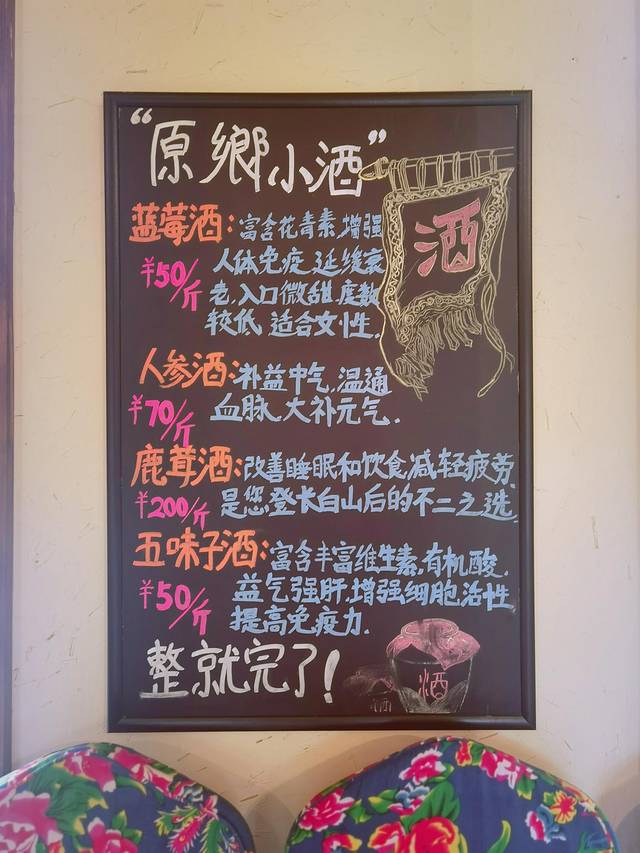 “原鄉小酒”
酒
蓝莓酒：富含花青素,增强
¥50/斤 人体免疫,延缓衰
老,入口微甜,度数
较低,适合女性.
人参酒：补益中气,温通
¥70/斤 血脉,大补元气.
鹿茸酒：改善睡眠和饮食,减轻疲劳.
¥200/斤 是您,登长白山后的不二之选.
五味子酒：富含丰富维生素,有机酸.
¥50/斤 益气强肝,增强细胞活性
提高免疫力.
整就完了！
酒